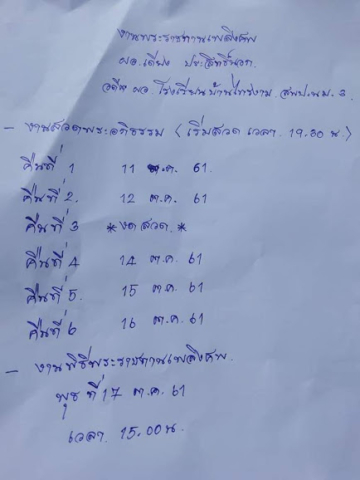 งานพระราชทานเพลิงศพ
ผอ. เตียง ประสิทธิ์นอก
อดีต ผอ. โรงเรียนบ้านไทรงาม. สพป.นม. 3.
- งานสวดพระอภิธรรม (เริ่มสวด เวลา. 19.30 น.)
คืนที่ 1 11 ต.ค. 61.
คืนที่ 2. 12 ต.ค. 61
คืนที่ 3 *งดสวด.*
คืนที่ 4 14 ต.ค. 61
คืนที่ 5. 15 ต.ค. 61
คืนที่ 6 16 ต.ค. 61
- งานพิธีพระราชทานเพลิงศพ.
พุธ ที่ 17 ต.ค. 61
เวลา. 15.00 น.